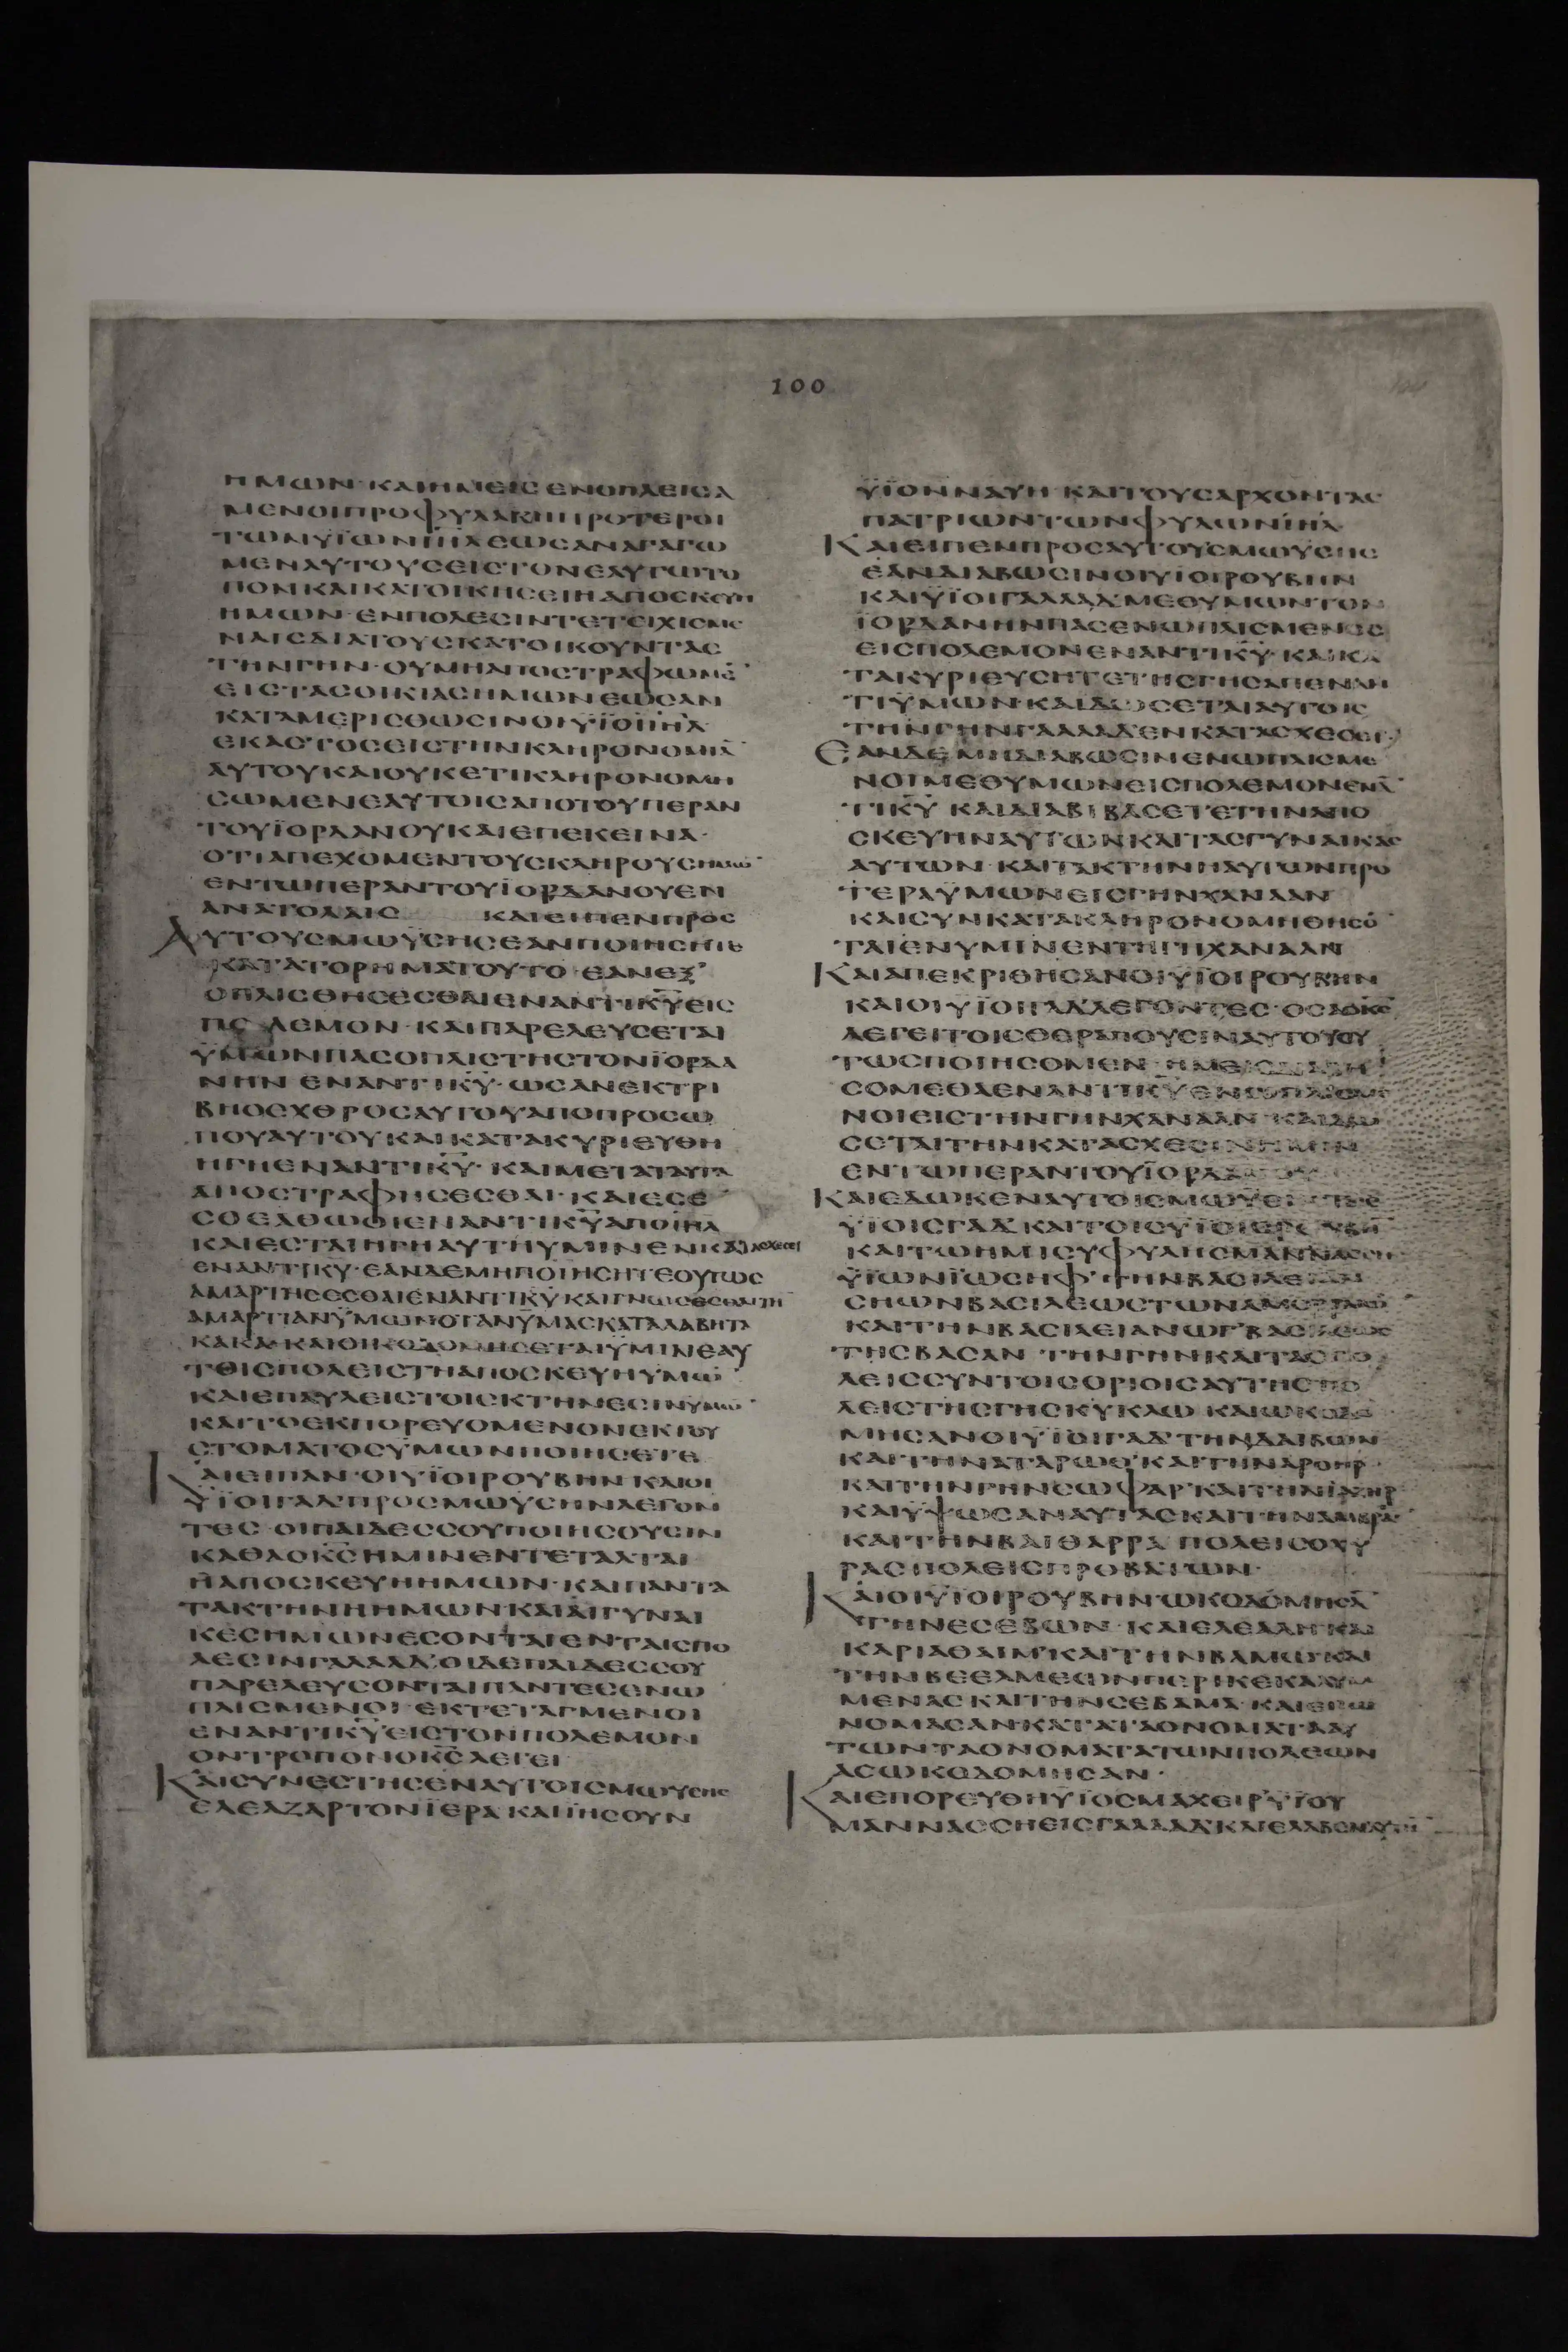 100
ΗΜΩΝ·ΚΑΙΗΜΕΙΣΕΝΟΠΛΕΙΣΑ
ΜΕΝΟΙΠΡΟΦΥΛΑΚΗΠΡΟΤΕΡΟΙ
ΤΩΝΥΪΩΝΙΗΛΕΩΣΑΝΑΓΑΓΩ
ΜΕΝΑΥΤΟΥΣΕΙΣΤΟΝΕΑΥΤΩΤΟ
ΠΟΝΚΑΙΚΑΤΟΙΚΗΣΕΙΗΑΠΟΣΚΕΥΗ
ΗΜΩΝ·ΕΝΠΟΛΕΣΙΝΤΕΤΕΙΧΙΣΜΕ
ΝΑΙΣΔΙΑΤΟΥΣΚΑΤΟΙΚΟΥΝΤΑΣ
ΤΗΝΓΗΝ·ΟΥΜΗΑΠΟΣΤΡΑΦΩΜΕ̄
ΕΙΣΤΑΣΟΙΚΙΑΣΗΜΩΝΕΩΣΑΝ
ΚΑΤΑΜΕΡΙΣΘΩΣΙΝΟΙΥΪΟΙΙΗΛ
ΕΚΑΣΤΟΣΕΙΣΤΗΝΚΛΗΡΟΝΟΜΙᾹ
ΑΥΤΟΥΚΑΙΟΥΚΕΤΙΚΛΗΡΟΝΟΜΗ
ΣΩΜΕΝΕΑΥΤΟΙΣΑΠΟΤΟΥΠΕΡΑΝ
ΤΟΥΪΟΡΔΑΝΟΥΚΑΙΕΠΕΚΕΙΝΑ·
ΟΤΙΑΠΕΧΟΜΕΝΤΟΥΣΚΛΗΡΟΥΣΗΜΩ̄
ΕΝΤΩΠΕΡΑΝΤΟΥΪΟΡΔΑΝΟΥΕΝ
ΑΝΑΤΟΛΑΙΣ ΚΑΙΕΙΠΕΝΠΡΟΣ
ΑΥΤΟΥΣΜΩΫΣΗΣΕΑΝΠΟΙΗΣΗΤΕ
ΚΑΤΑΤΟΡΗΜΑΤΟΥΤΟ·ΕΑΝΕΞ
ΟΠΛΙΣΘΗΣΕΣΘΑΙΕΝΑΝΤΙΚῩΕΙΣ
ΠΟΛΕΜΟΝ·ΚΑΙΠΑΡΕΛΕΥΣΕΤΑΙ
ΫΜΩΝΠΑΣΟΠΛΙΣΤΗΣΤΟΝΪΟΡΔΑ
ΝΗΝ ΕΝΑΝΤΙΚῩ·ΩΣΑΝΕΚΤΡΙ
ΒΗΟΣΧΘΡΟΣΑΥΤΟΥΑΠΟΠΡΟΣΩ
ΠΟΥΑΥΤΟΥΚΑΙΚΑΤΑΚΥΡΙΕΥΘΗ
ΗΓΗΕΝΑΝΤΙΚῩ·ΚΑΙΜΕΤΑΤΑΥΤΑ
ΑΠΟΣΤΡΑΦΗΣΕΣΘΑΙ·ΚΑΙΕΣΕ
ΣΘΕΑΘΩΟΙΕΝΑΝΤΙΚῩΑΠΟΙΗΛ
ΚΑΙΕΣΤΑΙΗΓΗΑΥΤΗΥΜΙΝΕΝΚΑΤΑΣΧΕΣΕΙ
ΕΝΑΝΤΙΚΥ·ΕΑΝΔΕΜΗΠΟΙΗΣΗΤΕΟΥΤΩΣ
ΑΜΑΡΤΗΣΕΣΘΑΙΕΝΑΝΤΙΚῩΚΑΙΓΝΩΣΕΣΘΑΙΤΗ̄
ΑΜΑΡΤΙΑΝΫΜΩΝΟΤΑΝΫΜΑΣΚΑΤΑΛΑΒΗΤΑ
ΚΑΚΑ·ΚΑΙΟΙΚΟΔΟΜΗΣΕΤΑΙΫΜΙΝΕΑΥ
ΤΟΙΣΠΟΛΕΙΣΤΗΑΠΟΣΚΕΥΗΥΜΩ̄
ΚΑΙΕΠΑΥΛΕΙΣΤΟΙΣΚΤΗΝΕΣΙΝΥΜΩ̄
ΚΑΙΤΟΕΚΠΟΡΕΥΟΜΕΝΟΝΕΚΤΟΥ
ΣΤΟΜΑΤΟΣΥΜΩΝΠΟΙΗΣΕΤΕ
ΚΑΙΕΙΠΑΝ·ΟΙΥΪΟΙΡΟΥΒΗΝΚΑΙΟΙ
ΫΙΟΙΓΑΔ'ΠΡΟΣΜΩΫΣΗΝΛΕΓΟΝ
ΤΕΣ·ΟΙΠΑΙΔΕΣΣΟΥΠΟΙΗΣΟΥΣΙΝ
ΚΑΘΑΟΚΣ̄ΗΜΙΝΕΝΤΕΤΑΛΤΑΙ
ΗΑΠΟΣΚΕΥΗΗΜΩΝ·ΚΑΙΠΑΝΤΑ
ΤΑΚΤΗΝΗΗΜΩΝΚΑΙΑΙΓΥΝΑΙ
ΚΕΣΗΜΩΝΕΣΟΝΤΑΙΕΝΤΑΙΣΠΟ
ΛΕΣΙΝΓΑΛΑΑΔ'ΟΙΔΕΠΑΙΔΕΣΣΟΥ
ΠΑΡΕΛΕΥΣΟΝΤΑΙΠΑΝΤΕΣΕΝΩ
ΠΛΙΣΜΕΝΟΙ·ΕΚΤΕΤΑΓΜΕΝΟΙ
ΕΝΑΝΤΙΚῩΕΙΣΤΟΝΠΟΛΕΜΟΝ
ΟΝΤΡΟΠΟΝΟΚΣ̄ΛΕΓΕΙ
ΚΑΙΣΥΝΕΣΤΗΣΕΝΑΥΤΟΙΣΜΩΥΣΗΣ
ΕΛΕΑΖΑΡΤΟΝΪΕΡΑΚΑΙΪΗΣΟΥΝ
ΫΪΟΝΝΑΥΗ·ΚΑΙΤΟΥΣΑΡΧΟΝΤΑΣ
ΠΑΤΡΙΩΝΤΩΝΦΥΛΩΝΙΗΛ
ΚΑΙΕΙΠΕΝΠΡΟΣΑΥΤΟΥΣΜΩΫΣΗΣ
ΕΑΝΔΙΑΒΩΣΙΝΟΙΥΪΟΙΡΟΥΒΗΝ
ΚΑΙΫΪΟΙΓΑΔΜΕΘΥΜΩΝΤΟΝ
ΪΟΡΔΑΝΗΝΠΑΣΕΝΩΠΛΙΣΜΕΝΟΣ
ΕΙΣΠΟΛΕΜΟΝΕΝΑΝΤΙΚῩ·ΚΑΙΚΑ
ΤΑΚΥΡΙΕΥΣΗΤΕΤΗΣΓΗΣΑΠΕΝΑΝ
ΤΙΫΜΩΝ·ΚΑΙΔΩΣΕΤΑΙΑΥΤΟΙΣ
ΤΗΝΓΗΝΓΑΛΑΑΔΕΝΚΑΤΑΣΧΕΣΕΙ
ΕΑΝΔΕΜΗΔΙΑΒΩΣΙΝΕΝΩΠΛΙΣΜΕ
ΝΟΙΜΕΘΥΜΩΝΕΙΣΠΟΛΕΜΟΝΕΝᾹ
ΤΙΚῩ ΚΑΙΔΙΑΒΙΒΑΣΕΤΕΤΗΝΑΠΟ
ΣΚΕΥΗΝΑΥΤΩΝΚΑΙΤΑΣΓΥΝΑΙΚΑΣ
ΑΥΤΩΝ·ΚΑΙΤΑΚΤΗΝΗΑΥΤΩΝΠΡΟ
ΤΕΡΑΫΜΩΝΕΙΣΓΗΝΧΑΝΑΑΝ
ΚΑΙΣΥΝΚΑΤΑΚΛΗΡΟΝΟΜΗΘΗΣΟ̄
ΤΑΙΕΝΥΜΙΝΕΝΤΗΓΗΧΑΝΑΑΝ
ΚΑΙΑΠΕΚΡΙΘΗΣΑΝΟΙΥΪΟΙΡΟΥΒΗΝ
ΚΑΙΟΙΥΪΟΙΓΑΔΛΕΓΟΝΤΕΣ·ΟΣΑΟΚΣ̄
ΛΕΓΕΙΤΟΙΣΘΕΡΑΠΟΥΣΙΝΑΥΤΟΥΟΥ
ΤΩΣΠΟΙΗΣΟΜΕΝ·ΗΜΕΙΣΔΙΑΒΗ
ΣΟΜΕΘΑΕΝΑΝΤΙΚῩΕΝΩΠΛΙΣΜΕ
ΝΟΙΕΙΣΤΗΝΓΗΝΧΑΝΑΑΝ·ΚΑΙΔΩ
ΣΕΤΑΙΤΗΝΚΑΤΑΣΧΕΣΙΝΗΜΙΝ
ΕΝΤΩΠΕΡΑΝΤΟΥΪΟΡΔΑΝΟΥ
ΚΑΙΕΔΩΚΕΝΑΥΤΟΙΣΜΩΫΣΗΣΤΟΙΣ
ΥΪΟΙΣΓΑΔ'ΚΑΙΤΟΙΣΥΪΟΙΣΡΟΥΒΗ̄
ΚΑΙΤΩΗΜΙΣΥΦΥΛΗΣΜΑΝΝΑΣΣΗ
ΫΪΩΝΪΩΣΗΦ'ΤΗΝΒΑΣΙΛΕΙΑΝ
ΣΗΩΝΒΑΣΙΛΕΩΣΤΩΝΑΜΟΡΡΑΙΩ̄
ΚΑΙΤΗΝΒΑΣΙΛΕΙΑΝΩΓ'ΒΑΣΙΛΕΩΣ
ΤΗΣΒΑΣΑΝ ΤΗΝΓΗΝΚΑΙΤΑΣΠΟ
ΛΕΙΣΣΥΝΤΟΙΣΟΡΙΟΙΣΑΥΤΗΣΠΟ
ΛΕΙΣΤΗΣΓΗΣΚΥΚΛΩ ΚΑΙΩΚΟΔΟ
ΜΗΣΑΝΟΙΥΪΟΙΓΑΔ'ΤΗΝΔΑΙΒΩΝ
ΚΑΙΤΗΝΑΤΑΡΩΘ'ΚΑΙΤΗΝΑΡΟΗΡ
ΚΑΙΤΗΝΡΗΝΣΩΦΑΡ'ΚΑΙΤΗΝΪΑΖΗΡ
ΚΑΙΫΨΩΣΑΝΑΥΤΑΣΚΑΙΤΗΝΑΜΒΡᾹ
ΚΑΙΤΗΝΒΑΙΘΑΡΡΑ ΠΟΛΕΙΣΟΧΥ
ΡΑΣΠΟΛΕΙΣΠΡΟΒΑΤΩΝ·
ΚΑΙΟΙΥΪΟΙΡΟΥΒΗΝΩΚΟΔΟΜΗΣᾹ
ΤΗΝΕΣΕΒΩΝ·ΚΑΙΕΛΕΑΛΗΚΑΙ
ΚΑΡΙΑΘΑΙΜ'ΚΑΙΤΗΝΒΑΜΩΚΑΙ
ΤΗΝΒΕΕΛΜΕΩΝΠΕΡΙΚΕΚΥΚΛΩ
ΜΕΝΑΣΚΑΙΤΗΝΣΕΒΑΜΑ·ΚΑΙΕΠΩ
ΝΟΜΑΣΑΝ·ΚΑΤΑΤΑΟΝΟΜΑΤΑΑΥ
ΤΩΝΤΑΟΝΟΜΑΤΑΤΩΝΠΟΛΕΩΝ
ΑΣΩΚΟΔΟΜΗΣΑΝ·
ΚΑΙΕΠΟΡΕΥΘΗΥΪΟΣΜΑΧΕΙΡ'ΥΪΟΥ
ΜΑΝΝΑΣΣΗΕΙΣΓΑΛΑΑΔ'ΚΑΙΕΛΑΒΕΝΑΥΤΗ̄